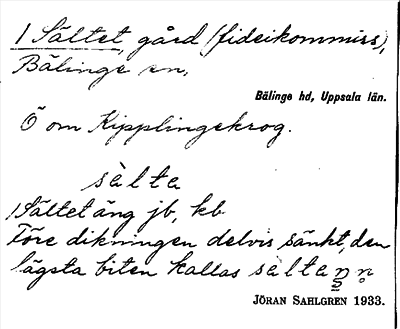 1 Sältet, gård (fideikommiss),
Bälinge sn,
Bälinge hd, Uppsala län.
Ö om Kipplingekrog.
sàlta
1 Sältet äng jb, kb
Före dikningen delvis sänkt, den
lägsta biten kallas
JÖRAN SAHLGREN 1933.